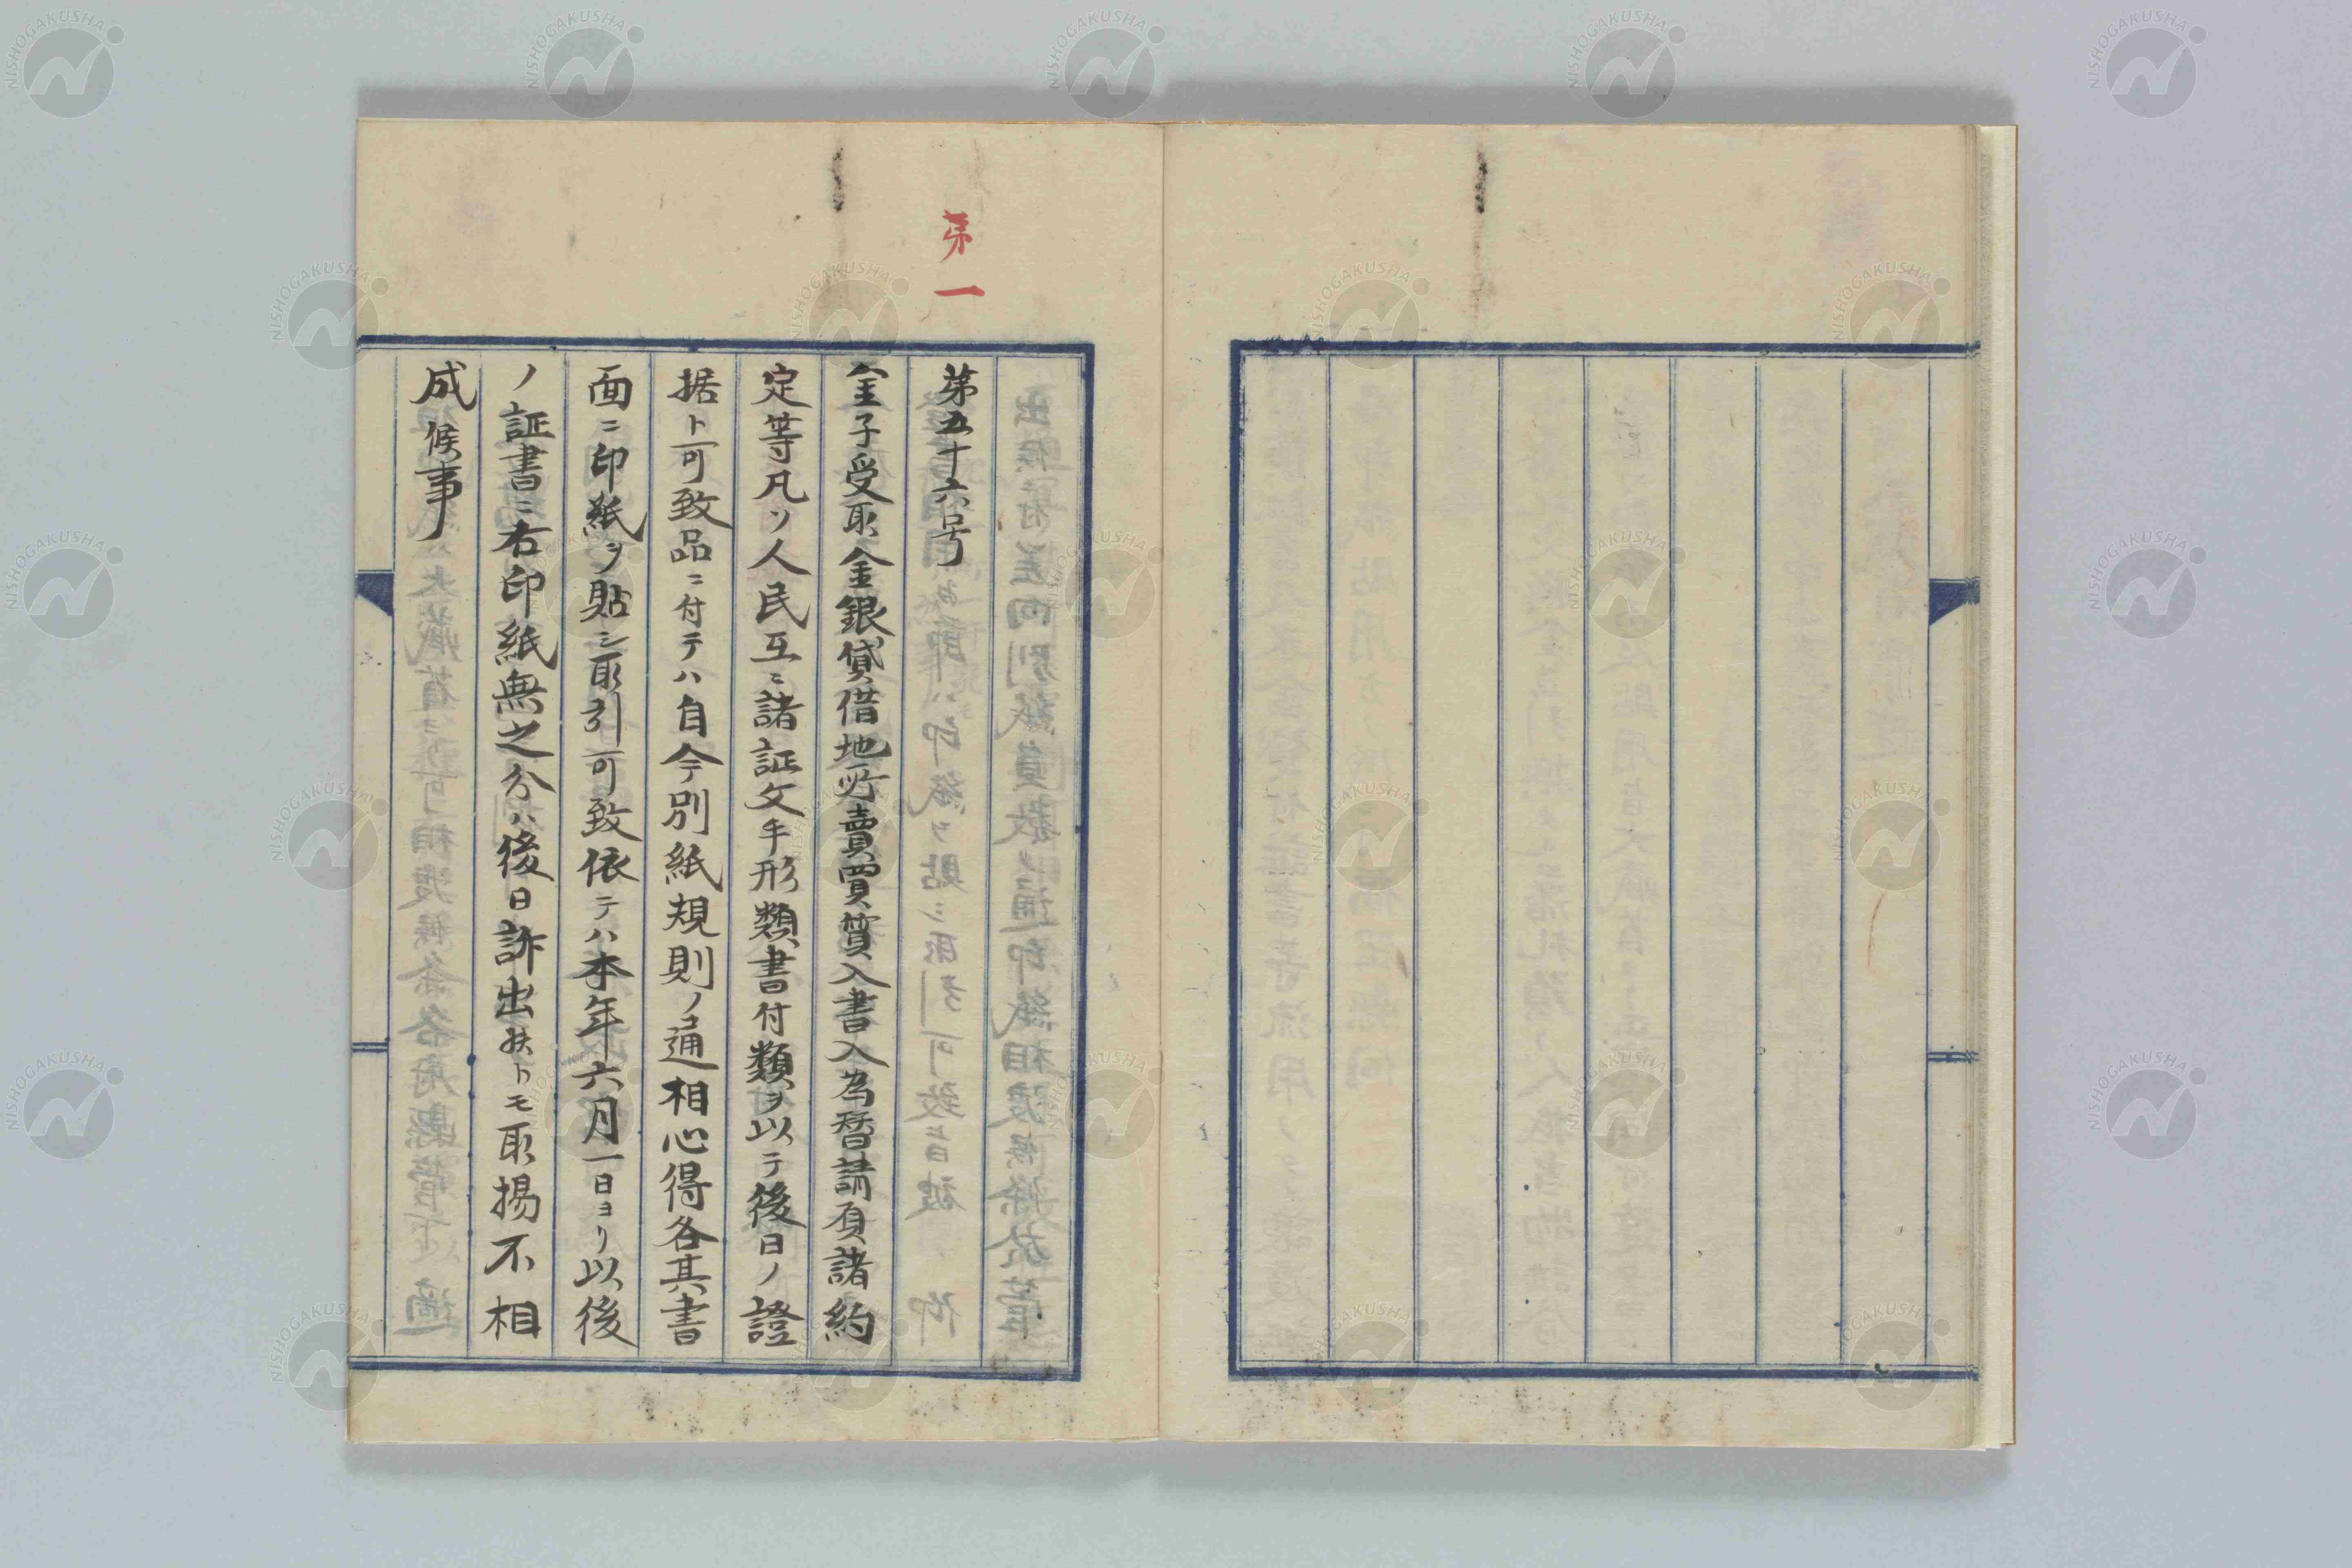 第一
第五十六号
金子受取金銀貸借地所賣買質入書入為替請負諸約
定等凡ソ人民互ニ諸証文手形類書付類ヲ以テ後日ノ證
据ト可致品ニ付テハ自今別紙規則ノ通相心得各其書
面ニ印紙ヲ貼シ取引可致依テハ本年六月一日ヨリ以後
ノ証書ニ右印紙無之分ハ後日訴出候トモ取揚不相
成候事
NISHOGAKUSHA